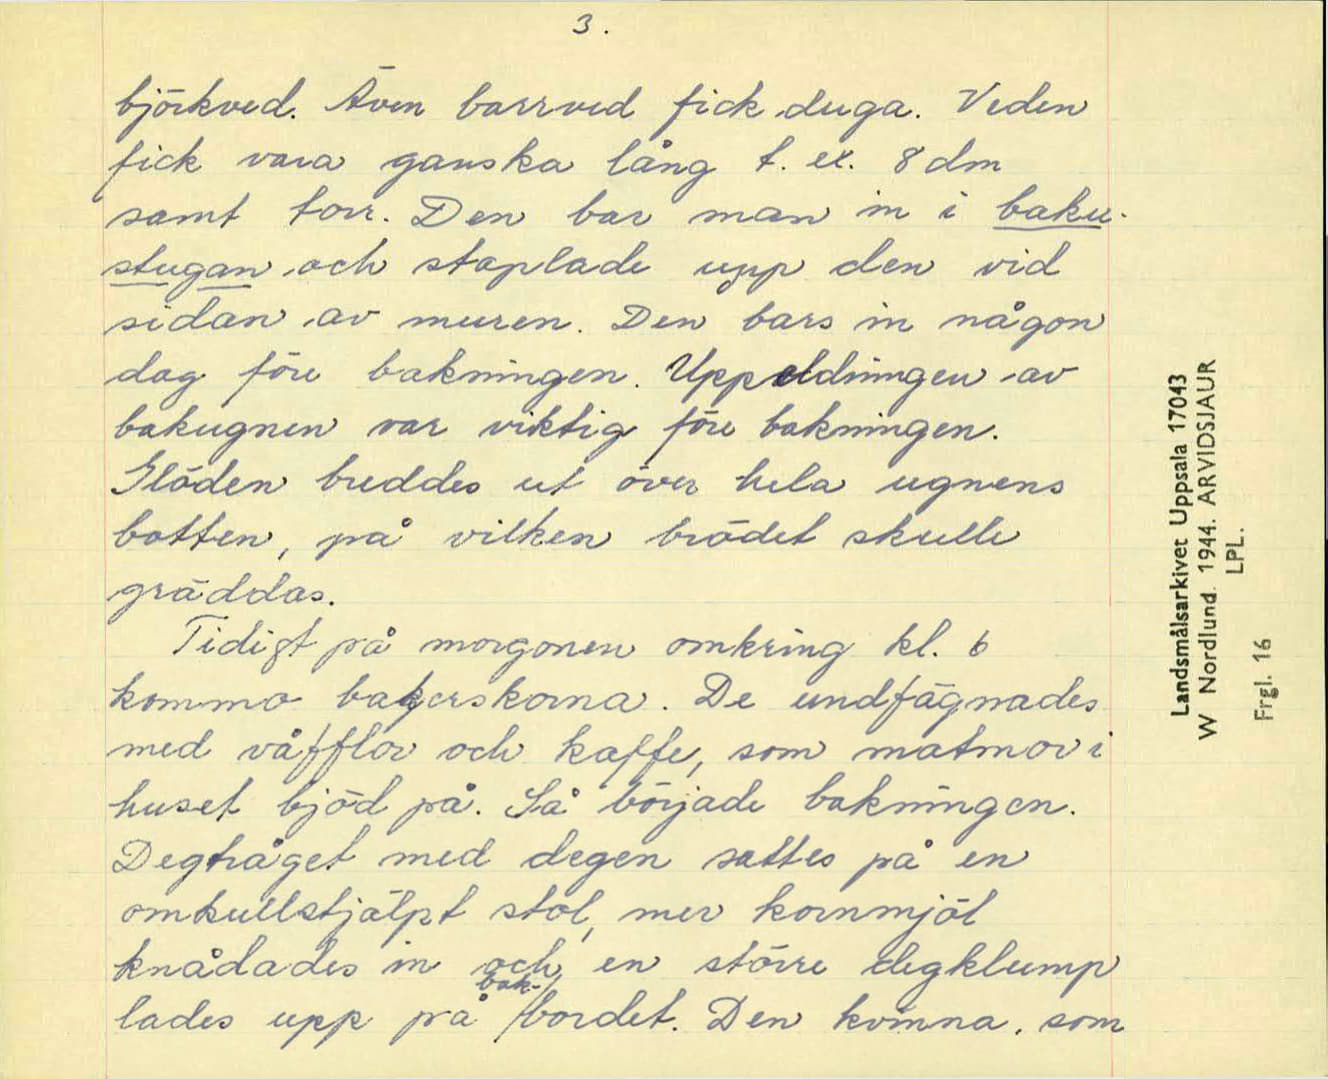 3.
björkved. Även barrved fick duga. Veden
fick vara ganska lång t. ex. 8 dm
samt torr. Den bar man in i baku-
stugan och staplade upp den vid
sidan av muren. Den bars in någon
dag före bakningen. Uppeldningen av
bakugnen var viktig före bakningen.
Glöden breddes ut över hela ugnens
botten, på vilken brödet skulle
gräddas.
Tidigt på morgonen omkring kl. 6
kommo bakerskorna. De undfägnades
med våfflor och kaffe, som matmor i
huset bjöd på. Så började bakningen.
Degtråget med degen sattes på en
omkullstjälpt stol, mer kornmjöl
knådades in och en större degklump
lades upp på bak-bordet. Den kvinna, som
Landsmålsarkivet Uppsala 17043
W Nordlund. 1944. ARVIDSJAUR
LPL.
Frgl. 16